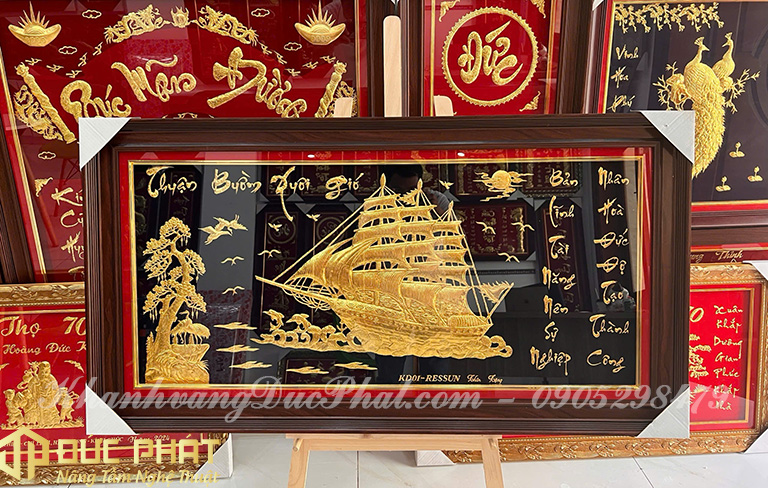 Phúc Mãn Đường
Đức
Vinh
Hoa
Phú
Thuận Buồm Xuôi Gió
Bản
Lĩnh
Tài
Năng
Nên
Sự
Nghiệp
Nhân
Hoà
Đức
Độ
Tạo
Thành
Công
KD01-RESSUN Thân Tặng
Thọ 70
Hoàng Đức
Thịnh
70
Xuân
Khắp
Dương
Gian
Phúc
Khắp
Nhà
KhanhvangDucPhat.com - 0905298175
ĐỨC PHÁT
Nâng Tầm Nghệ Thuật